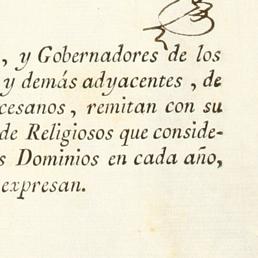 , y Gobernadores de los
y demás adyacentes, de
cesanos, remitan con su
de Religiosos que conside-
s Dominios en cada año,
expresan.